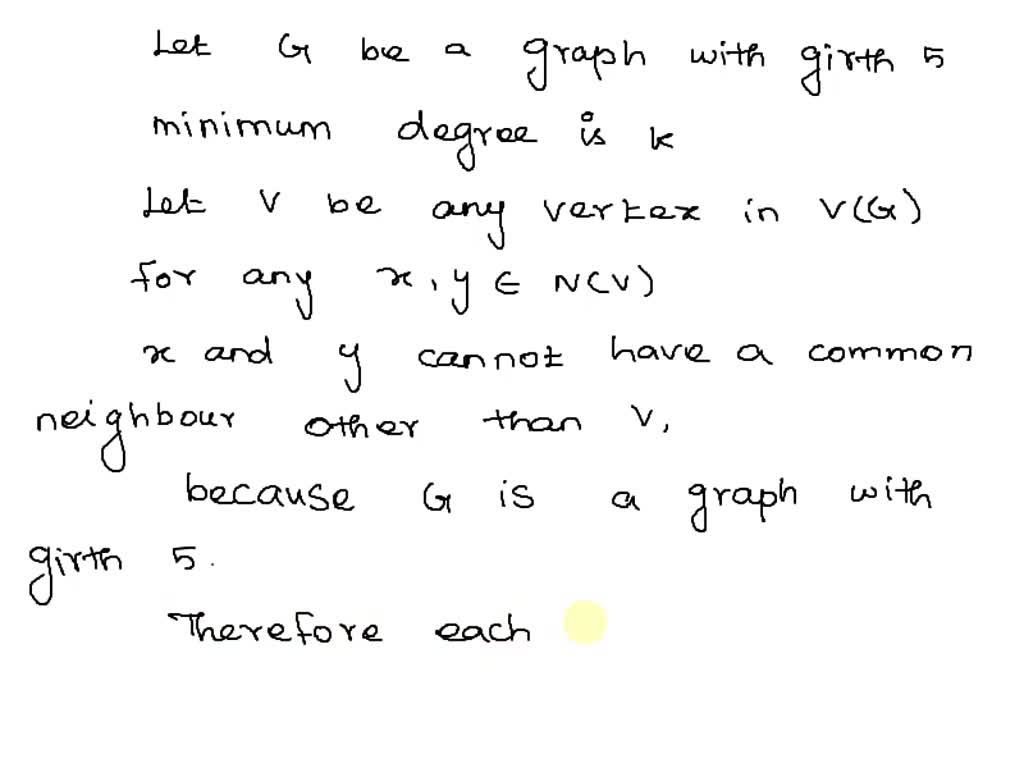 Let G be a graph with girth 5
minimum degree is k
Let V be any vertex in V(G)
for any x, y ∈ N(V)
x and y cannot have a common
neighbour other than V,
because G is a graph with
girth 5.
Therefore each